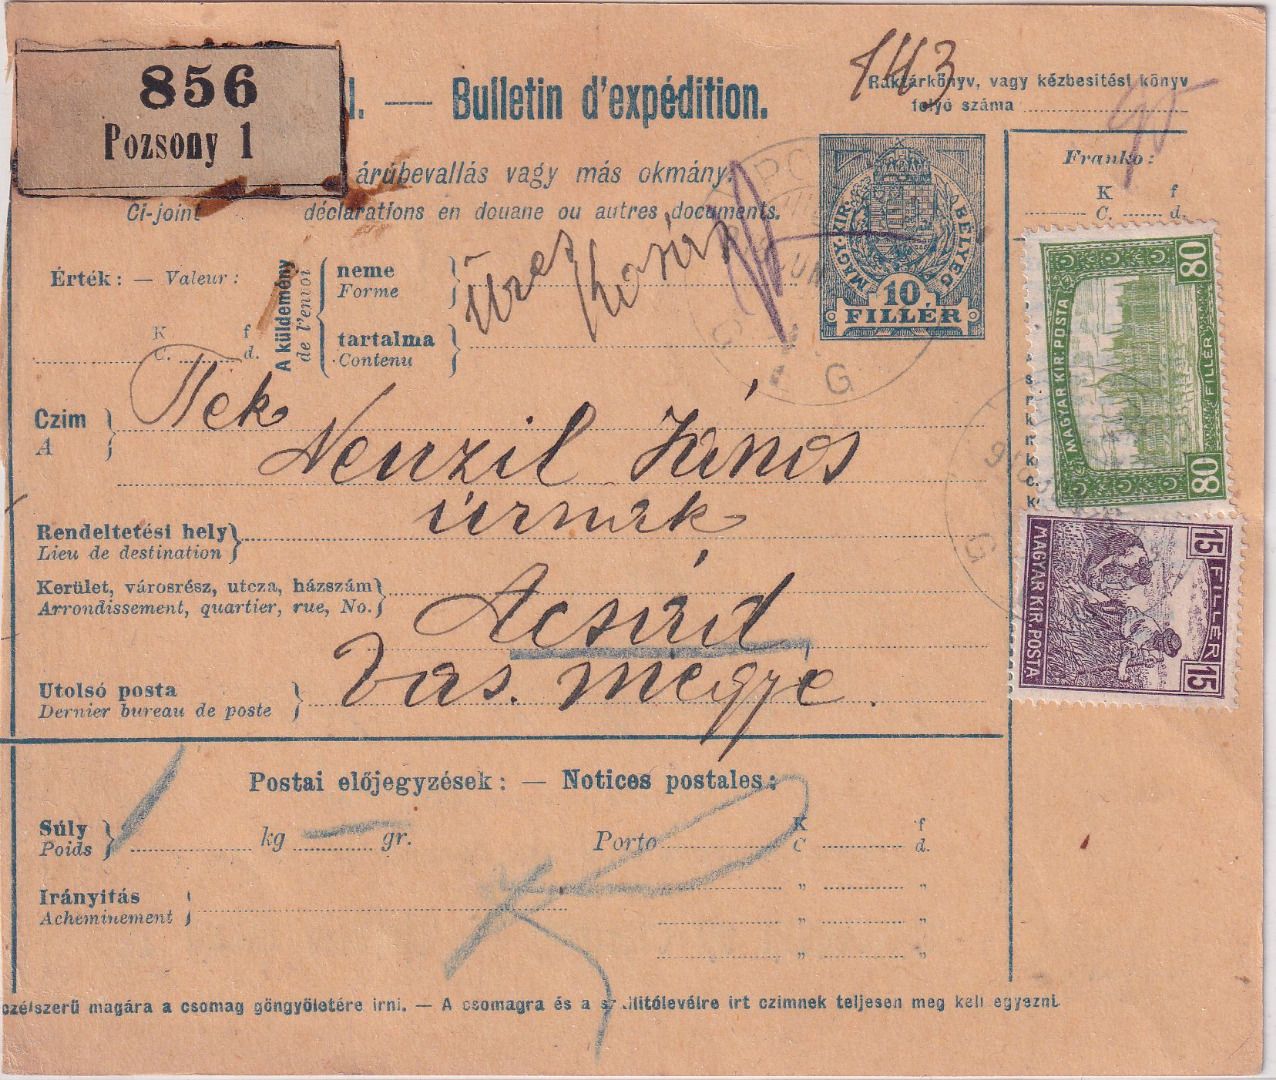 856
Pozsony 1
l. — Bulletin d'expédition.
143
Raktárkönyv, vagy kézbesitési könyv
folyó száma
árúbevallás vagy más okmány.
Ci-joint déclarations en douane ou autres documents.
Franko:
K f
C. d.
Érték: — Valeur:
K f
C. d.
A küldemény
de l'envoi
neme
Forme
tartalma
Contenu
üres kosár
MAGY. KIR. BÉLYEG
10
FILLÉR
80 FILLÉR 80
MAGYAR KIR. POSTA
15 FILLÉR 15
MAGYAR KIR. POSTA
G
G
Czim
A
Tek
Neuzil János
úrnak
Rendeltetési hely
Lieu de destination
Kerület, városrész, utcza, házszám
Arrondissement, quartier, rue, No.
Acsád
Utolsó posta
Dernier bureau de poste
Vas. megye.
Postai előjegyzések: — Notices postales:
Súly
Poids
kg gr.
Porto K f
C d.
" "
" "
" "
Irányitás
Acheminement
czélszerű magára a csomag göngyöletére irni. — A csomagra és a szállitólevélre irt czimnek teljesen meg kell egyezni